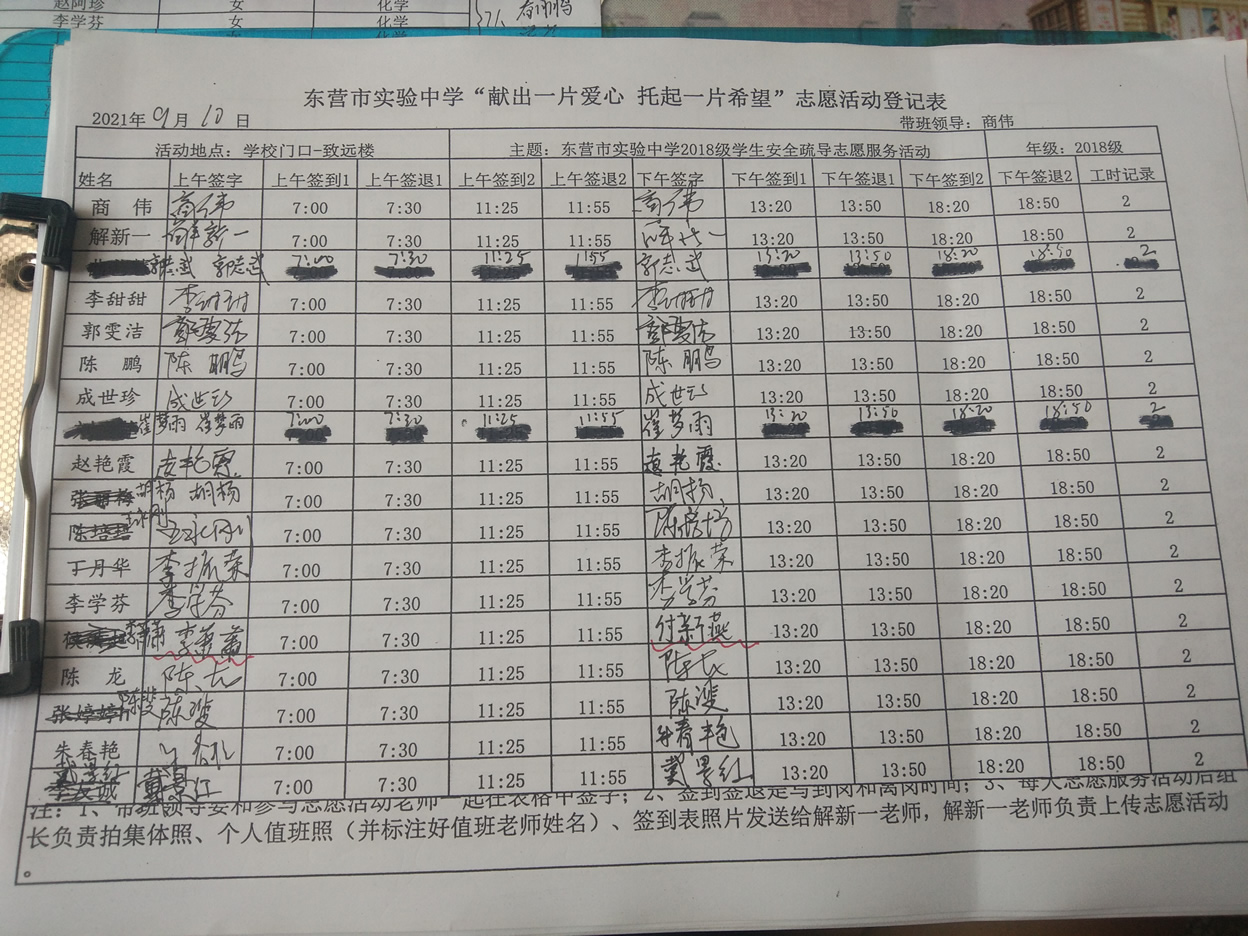 赵阿珍 女 化学
李学芬 女 化学
东营市实验中学“献出一片爱心 托起一片希望”志愿活动登记表
2021年 9 月 10 日 带班领导：商伟
活动地点：学校门口-致远楼 主题：东营市实验中学2018级学生安全疏导志愿服务活动 年级：2018级
姓名 上午签字 上午签到1 上午签退1 上午签到2 上午签退2 下午签字 下午签到1 下午签退1 下午签到2 下午签退2 工时记录
商 伟 商伟 7:00 7:30 11:25 11:55 商伟 13:20 13:50 18:20 18:50 2
解新一 解新一 7:00 7:30 11:25 11:55 解新一 13:20 13:50 18:20 18:50 2
郭志武 郭志武 7:00 7:30 11:25 11:55 郭志武 13:20 13:50 18:20 18:50 2
李甜甜 李甜甜 7:00 7:30 11:25 11:55 李甜甜 13:20 13:50 18:20 18:50 2
郭雯洁 郭雯洁 7:00 7:30 11:25 11:55 郭雯洁 13:20 13:50 18:20 18:50 2
陈 鹏 陈鹏 7:00 7:30 11:25 11:55 陈鹏 13:20 13:50 18:20 18:50 2
成世珍 成世珍 7:00 7:30 11:25 11:55 成世珍 13:20 13:50 18:20 18:50 2
崔梦雨 崔梦雨 7:00 7:30 11:25 11:55 崔梦雨 13:20 13:50 18:20 18:50 2
赵艳霞 赵艳霞 7:00 7:30 11:25 11:55 赵艳霞 13:20 13:50 18:20 18:50 2
胡杨 胡杨 7:00 7:30 11:25 11:55 胡杨 13:20 13:50 18:20 18:50 2
陈培培 王永刚 王永刚 7:00 7:30 11:25 11:55 陈培培 13:20 13:50 18:20 18:50 2
丁丹华 李振荣 7:00 7:30 11:25 11:55 李振荣 13:20 13:50 18:20 18:50 2
李学芬 李学芬 7:00 7:30 11:25 11:55 李学芬 13:20 13:50 18:20 18:50 2
李萧萧 7:00 7:30 11:25 11:55 付新燕 13:20 13:50 18:20 18:50 2
陈 龙 陈龙 7:00 7:30 11:25 11:55 陈龙 13:20 13:50 18:20 18:50 2
张婷婷 陈斐 陈斐 7:00 7:30 11:25 11:55 陈斐 13:20 13:50 18:20 18:50 2
朱春艳 7:00 7:30 11:25 11:55 朱春艳 13:20 13:50 18:20 18:50 2
戴景红 7:00 7:30 11:25 11:55 戴景红 13:20 13:50 18:20 18:50 2
注：1、带班领导要和参与志愿活动老师一起在表格中签字；2、签到签退是写到岗和离岗时间；3、每人志愿服务活动后组
长负责拍集体照、个人值班照（并标注好值班老师姓名）、签到表照片发送给解新一老师，解新一老师负责上传志愿活动
。